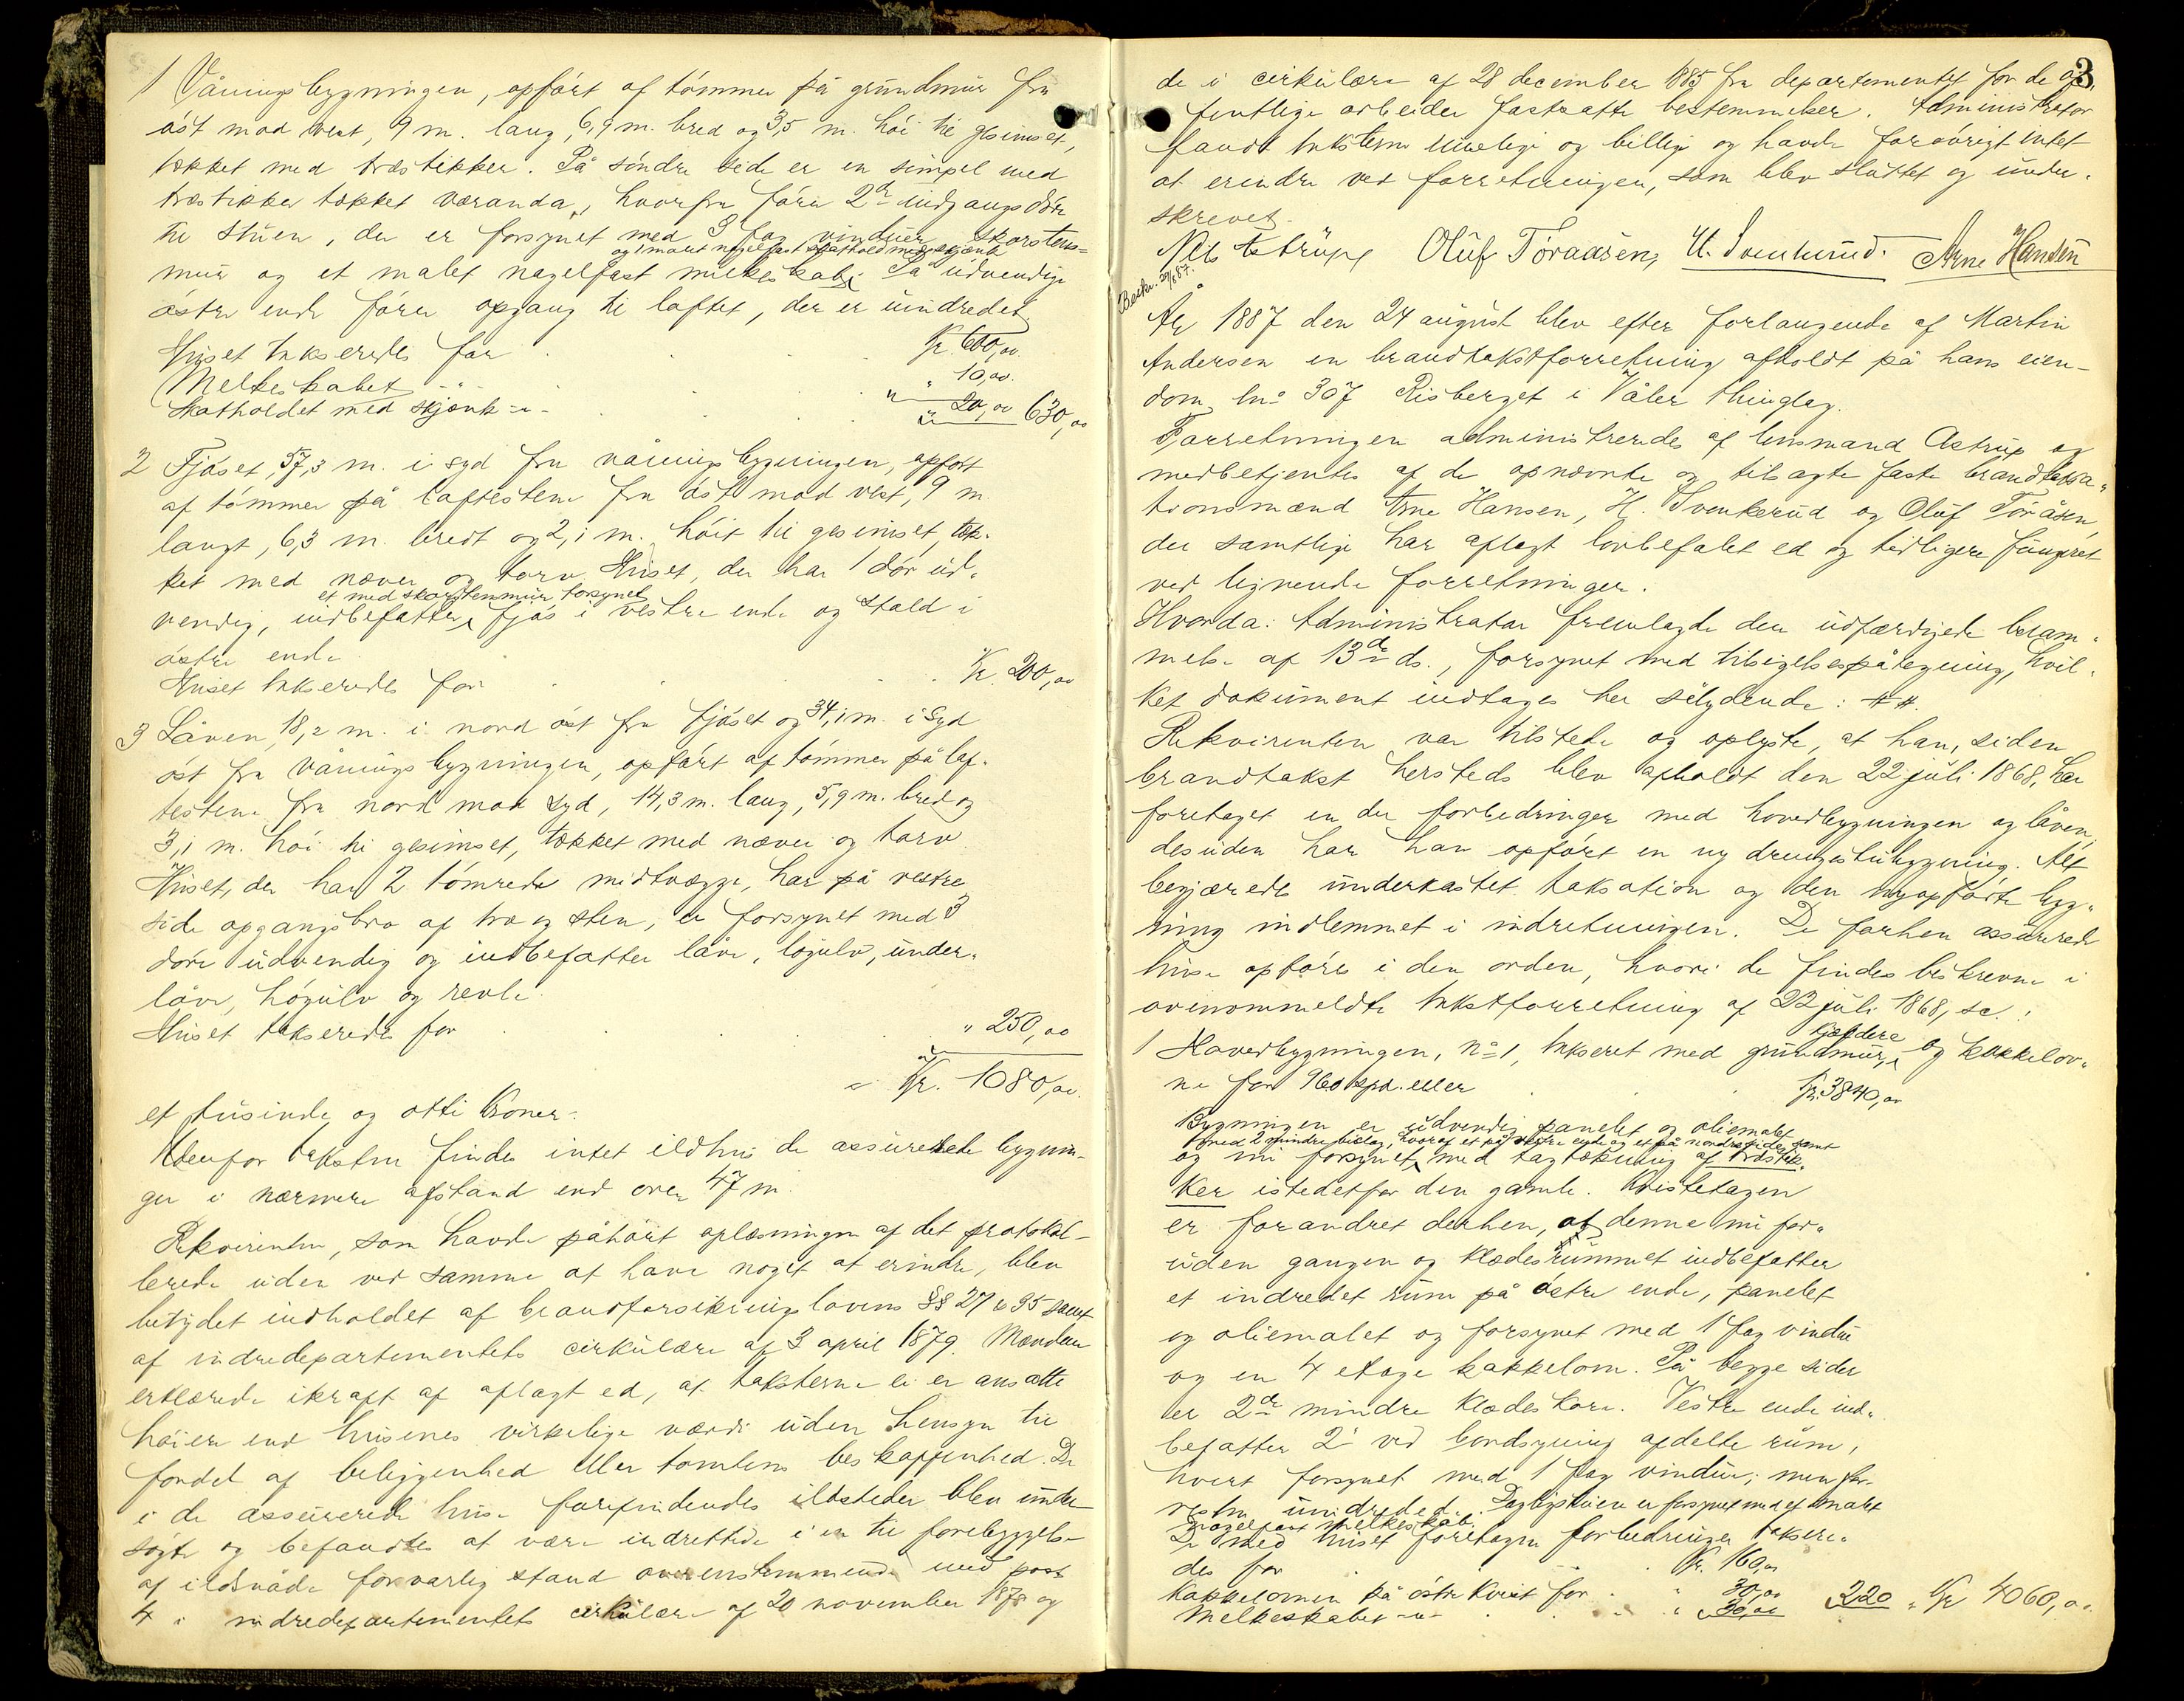 1 Våningsbygningen, opført af tømmer på grundmur fra
øst mod vest, 9 m. lang, 6,9 m. bred og 3,5 m. høi til gesimset,
tækket med træstikker. På søndre side er en simpel med
træstikker tækket veranda, hvorfra fører 2de indgangsdøre
til stuen, der er forsynet med 3 fag vinduer, skorstens=
og 1 malet nagelfast skathold med skjænk
mur og et malet nagelfast melkeskab. På udvendige
østre ende fører opgang til loftet, der er uindredet.
Huset takseredes for Kr. 600,00.
Melkeskabet -"- " 10,00.
Skatholdet med skjænk -"- " 20,00 630,00
2 Fjøset, 57,3 m. i syd fra våningsbygningen, opført
af tømmer på laftestene fra øst mod vest, 9 m.
langt, 6,3 m. bredt og 2,1 m. høit til gesimset, tæk-
ket med næver og torv. Huset, der har 1 dør ud-
et med skorstensmur forsynet
vendig, indbefatter fjøs i vestre ende og stald i
østre ende.
Huset takseredes for Kr. 200,00
3 Låven, 18,2 m. i nord øst fra fjøset og 34,1 m. i Syd
øst fra våningsbygningen, opført af tømmer på laf-
testene fra nord mod syd, 14,3 m. lang, 5,9 m. bred og
3,1 m. høi til gesimset, tækket med næver og torv.
Huset, der har 2 tømrede midtvægge, har på vestre
side opgangsbro af træ og sten, er forsynet med 3
døre udvendig og indbefatter låve, logulv, under-
låve, høgulv og sevle.
Huset takseredes for " 250,00
= Kr. 1080,00.
et tusinde og otti kroner.
Udenfor taksten findes intet ildhus de assurerede bygnin-
ger i nærmere afstand end over 47 m.
Rekvirenten, som havde påhørt oplæsningen af det protokol-
lerede uden ved samme at have noget at erindre, blev
betydet indholdet af brandforsikringslovens §§ 27 & 35 samt
af indredepartementets cirkulære af 3 april 1879. Mændene
erklærede ikraft af aflagt ed, at taksterne ei er ansatte
høiere end husenes virkelige værdi uden hensyn til
fordel af beliggenhed eller tomtens beskaffenhed. De
i de assurerede huse forefindendes ildsteder blev under-
søgte og befandtes at være indrettede i en til forebyggelse
af ildsvåde forvarlig stand overensstemmende med post
4 i indredepartementets cirkulære af 20 november 1878 og
3.
de i cirkulære af 28 december 1885 fra departementet for de of-
fentlige arbeider fastsatte bestemmelser. Administrator
fandt taksterne rimelige og billige og havde forøvrigt intet
at erindre ved forretningen, som blev sluttet og under-
skrevet.
Nils Astrup Oluf Toraasen, H. Svenkerud. Arne Hansen
Beskr. 29/8 87.
År 1887 den 24 august blev efter forlangende af Martin
Andersen en brandtakstforretning afholdt på hans eien-
dom, lno 307 Risberget i Våler thinglag.
Forretningen administreredes af lensmand Astrup og
medbetjentes af de opnævnte og tilsagte faste brandtaxa-
tionsmænd Arne Hansen, H. Svenkerud og Oluf Toråsen,
der samtlige har aflagt lovbefalet ed og tidligere fungeret
ved lignende forretninger.
Hvorda: Administrator fremlagde den udfærdigede beram-
melse af 13de ds., forsynet med tilsigelsespåtegning, hvil-
ket dokument indtages her sålydende: ##.
Rekvirenten var tilstede og oplyste, at han, siden
brandtakst hersteds blev afholdt den 22 juli 1868, har
foretaget en del forbedringer med hovedbygningen og låven,
desuden har han opført en ny drengestubygning. Alt
begjæredes underkastet taksation og den nyopførte byg-
ning indlemmet i indretningen. De forhen assurerede
huse opføres i den orden, hvori de findes beskrevne i
ovenommeldte takstforretning af 22 juli 1868, sc.:
kjældere
1 Hovedbygningen, no 1, takseret med grundmur, og kakkelov-
ne for 960 spd. eller Kr. 3840,00
Bygningen er udvendig panelet og oliemalet
med 2 mindre bislag, hvoraf et på vestre ende og et på nordre side, samt
og nu forsynet med tagtækning af træstik-
ker istedetfor den gamle. Kvistetagen
er forandret derhen, at denne nu for-
uden gangen og klædesrummet indbefatter
et indredet rum på østre ende, panelet
og oliemalet og forsynet med 1 fag vindu
og en 4 etages kakkelovn. På begge sider
er 2de mindre klædeskore. Vestre ende ind-
befatter 2 ved bordsyning afdelte rum,
hvert forsynet med 1 fag vindue; men for-
resten uindredet. Dagligstuen er forsynet med et malet
nagelfast melkeskab.
De med huset foretagne forbedringer taksere-
des for Kr. 160,00
Kakkelovnen på østre kvist for " 30,00
Melkeskabet -"- " 30,00 220 " Kr 4060,00.